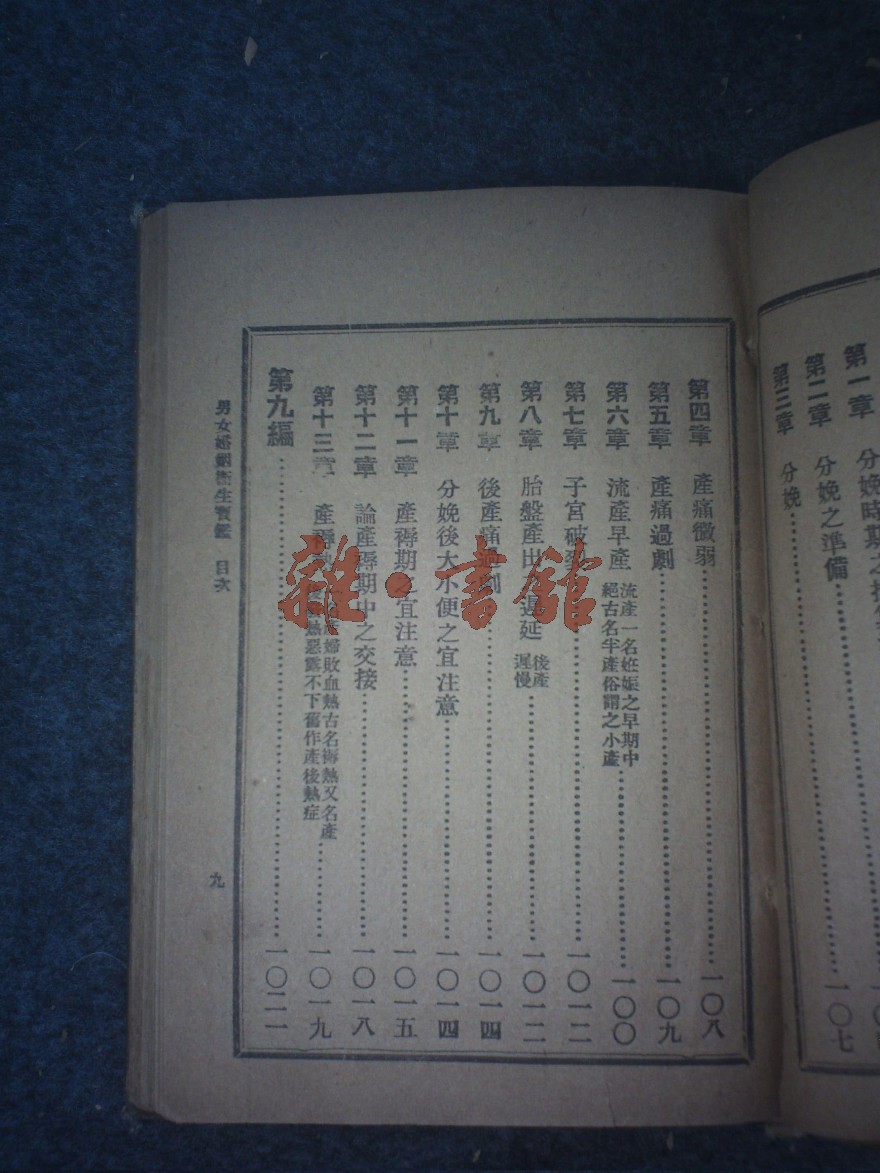 第一章　分娩時期之
第二章　分娩之準備
第三章　分娩……一〇七
第四章　產痛微弱……一〇八
第五章　產痛過劇……一〇九
第六章　流產早產　流產一名妊娠之早期中絕古名半產俗謂之小產……一〇〇
第七章　子宮破裂……一〇一二
第八章　胎盤產出之遲延　後產遲慢……一〇一二
第九章　後產痛過劇……一〇一四
第十章　分娩後大小便之宜注意……一〇一四
第十一章　產褥期之宜注意……一〇一五
第十二章　論產褥期中之交接……一〇一八
第十三章　產褥熱　產婦敗血熱古名褥熱又名產熱惡露不下舊作產後熱症……一〇一九
第九編……一〇二一
男女婚姻衛生寳鑑　目次
九
雜·書舘